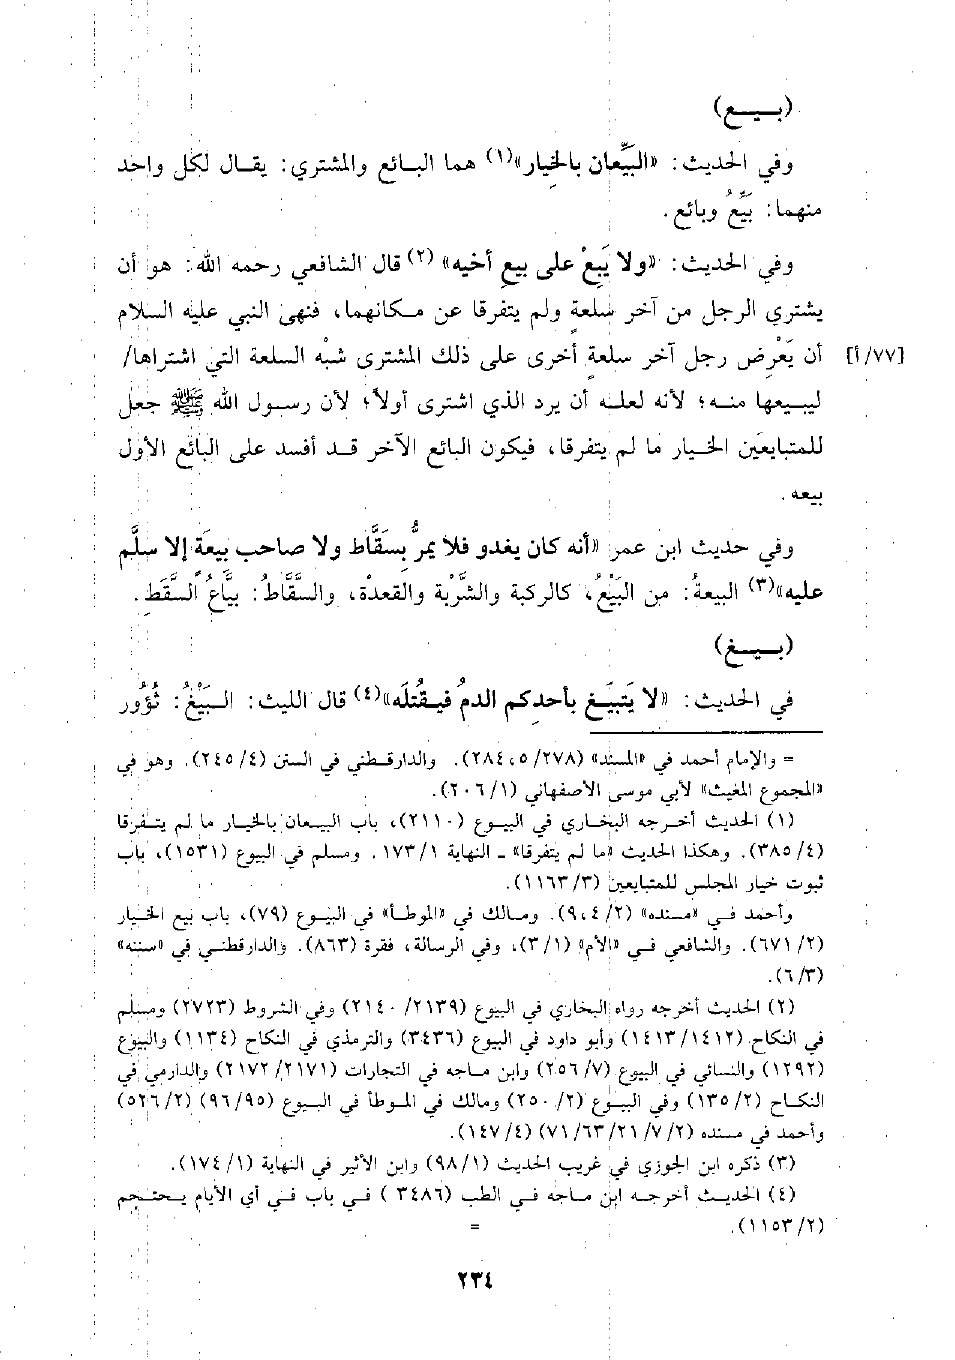 (بـيـع)
وفي الحديث: «البَيِّعان بالخِيار»(١) هما البائع والمشتري: يقال لكل واحد
منهما: بَيِّعُ وبائع.
وفي الحديث: «ولا يَبِعْ على بيعِ أخيه» (٢) قال الشافعي رحمه الله: هو أن
يشتري الرجل من آخر سلعةٍ ولم يتفرقا عن مكانهما، فنهى النبي عليه السلام
أن يَعْرِض رجل آخر سلعةٍ أخرى على ذلك المشترى شبْه السلعة التي اشتراها/ [٧٧/أ]
ليبيعها منه؛ لأنه لعله أن يرد الذي اشترى أولاً؛ لأن رسول الله ﷺ جعل
للمتبايعَين الخيار ما لم يتفرقا، فيكون البائع الآخر قد أفسد على البائع الأول
بيعه.
وفي حديث ابن عمر «أنه كان يغدو فلا يمرُّ بِسَقَّاط ولا صاحب بِيعَةٍ إلا سلَّم
عليه»(٣) البيعةُ: من البَيْعُ، كالركبة والشَّرْبة والقعدْة، والسَّقَّاطُ: بيَّاعُ السَّقَطِ.
(بـيـغ)
في الحديث: «لا يَتبيَّغ بأحدكم الدمُ فيقتُلَه»(٤) قال الليث: البَيْغُ: ثُؤُور
= والإمام أحمد في «المسند» (٢٨٤،٥/٢٧٨). والدارقطني في السنن (٢٤٥/٤). وهو في
«المجموع المغيث» لأبي موسى الأصفهاني (٢٠٦/١).
(١) الحديث أخرجه البخاري في البيوع (٢١١٠)، باب البيعان بالخيار ما لم يتفرقا
(٣٨٥/٤). وهكذا الحديث «ما لم يتفرقا» ـ النهاية ١٧٣/١. ومسلم في البيوع (١٥٣١)، باب
ثبوت خيار المجلس للمتبايعين (١١٦٣/٣).
وأحمد في «مسنده» (٩،٤/٢). ومالك في «الموطأ» في البيوع (٧٩)، باب بيع الخيار
(٦٧١/٢). والشافعي في «الأم» (٣/١)، وفي الرسالة، فقرة (٨٦٣). والدارقطني في «سننه»
(٦/٣).
(٢) الحديث أخرجه رواه البخاري في البيوع (٢١٤٠/٢١٣٩) وفي الشروط (٢٧٢٣) ومسلم
في النكاح (١٤١٣/١٤١٢) وأبو داود في البيوع (٣٤٣٦) والترمذي في النكاح (١١٣٤) والبيوع
(١٢٩٢) والنسائي في البيوع (٢٥٦/٧) وابن ماجه في التجارات (٢١٧٢/٢١٧١) والدارمي في
النكاح (١٣٥/٢) وفي البيوع (٢٥٠/٢) ومالك في الموطأ في البيوع (٩٦/٩٥) (٥٢٦/٢)
وأحمد في مسنده (٧١/٦٣/٢١/٧/٢) (١٤٧/٤).
(٣) ذكره ابن الجوزي في غريب الحديث (٩٨/١) وابن الأثير في النهاية (١٧٤/١).
(٤) الحديث أخرجه ابن ماجه في الطب (٣٤٨٦ ) في باب في أي الأيام يحتجم
(١١٥٣/٢). =
٢٣٤